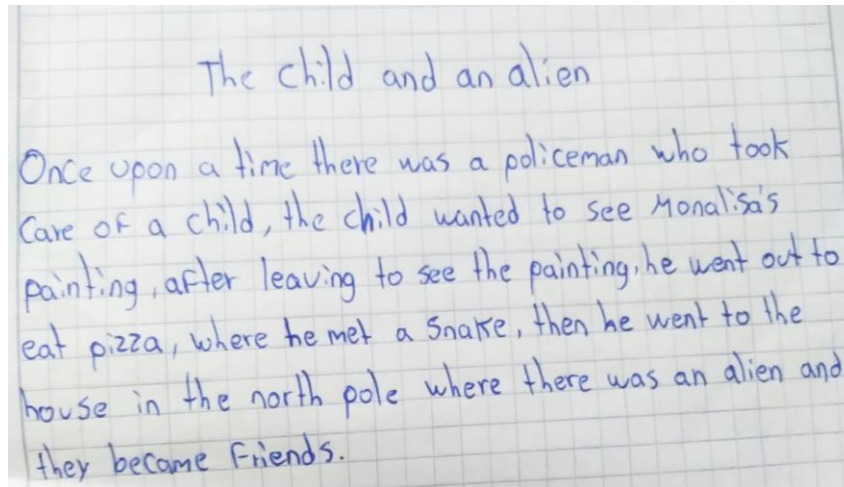 The child and an alien
Once upon a time there was a policeman who took
Care of a child, the child wanted to see Monalisa's
painting, after leaving to see the painting, he went out to
eat pizza, where he met a snake, then he went to the
house in the north pole where there was an alien and
they became Friends.